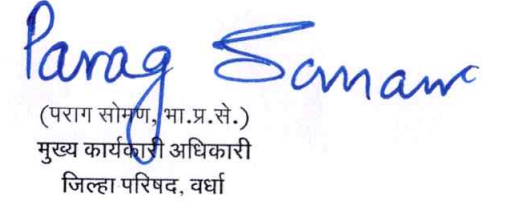 Parag Soman
(पराग सोमण, भा.प्र.से.)
मुख्य कार्यकारी अधिकारी
जिल्हा परिषद, वर्धा